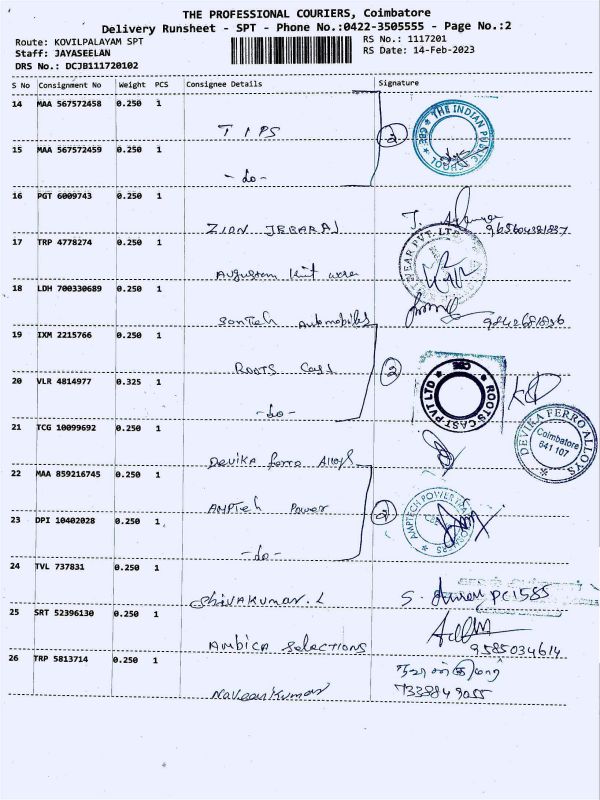 THE PROFESSIONAL COURIERS, Coimbatore
Delivery Runsheet - SPT - Phone No.:0422-3505555 - Page No.:2
Route: KOVILPALAYAM SPT RS No.: 1117201
Staff: JAYASEELAN RS Date: 14-Feb-2023
DRS No.: DCJB111720102
S No Consignment No Weight PCS Consignee Details Signature
14 MAA 567572458 0.250 1 TIPS 2 THE INDIAN PUBLIC SCHOOL CBE
15 MAA 567572459 0.250 1 -do-
16 PGT 6009743 0.250 1 ZION JEBARAJ
17 TRP 4778274 0.250 1 Augustan knit wear WEAR PVT. LTD
18 LDH 700330689 0.250 1 Santech Automobiles 9842681836
19 IXM 2215766 0.250 1 ROOTS Cast 2 ROOTS CAST PVT LTD CBE
20 VLR 4814977 0.325 1 -do-
21 TCG 10099692 0.250 1 Devika ferro Alloys DEVIKA FERRO ALLOYS Coimbatore 641 107
22 MAA 859216745 0.250 1 AMPTech Power 2 AMPTECH POWER
23 DPI 10402028 0.250 1 -do-
24 TVL 737831 0.250 1 Shivakumar.L PC1585
25 SRT 52396130 0.250 1 Ambica Selections 9585034614
26 TRP 5813714 0.250 1 Naveenkumar 7338849055